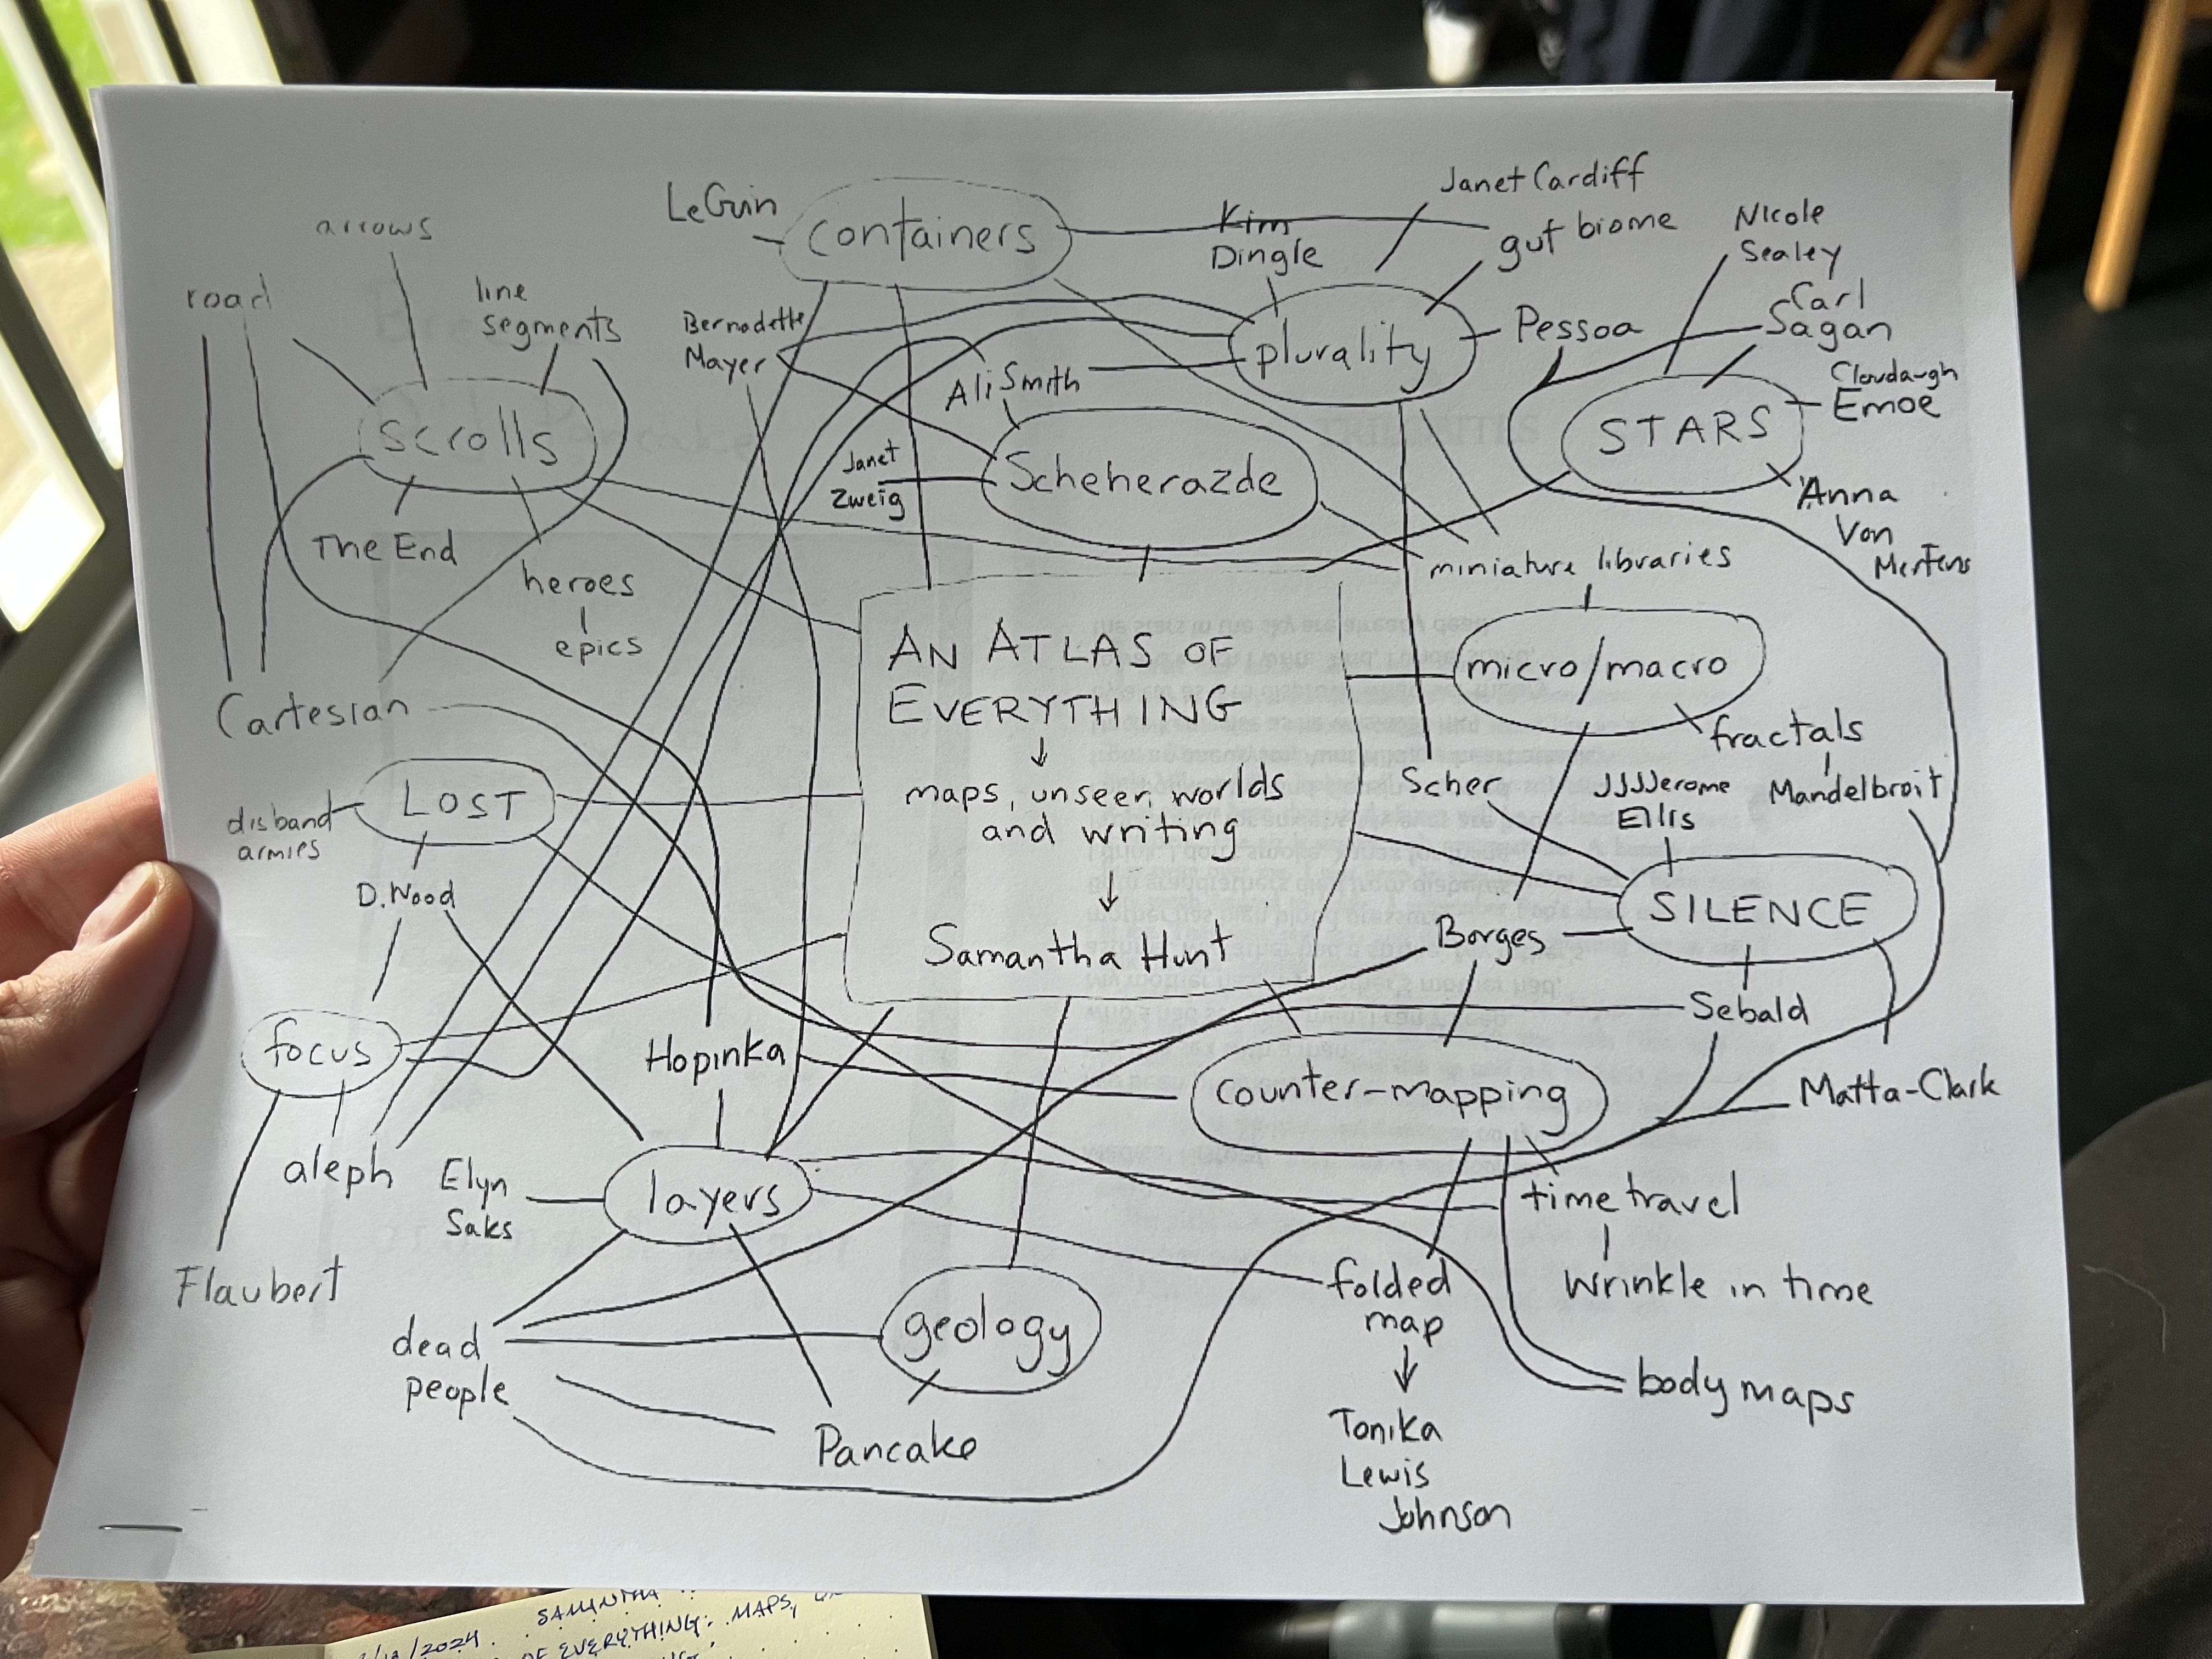 Janet Cardiff
LeGuin
containers
Kim
Dingle
gut biome
Nicole
Sealey
arrows
road
line
segments
Bernadette
Mayer
plurality
Pessoa
Carl
Sagan
Ali Smith
Cloudaugh
Emoe
scrolls
STARS
Janet
Zweig
Scheherazde
Anna
Von
Mertens
The End
heroes
epics
miniature libraries
AN ATLAS OF
EVERYTHING
maps, unseen worlds
and writing
Samantha Hunt
micro/macro
Cartesian
fractals
Mandelbroit
LOST
disband
armies
Scher
JJJJerome
Ellis
D. Wood
SILENCE
Borges
Sebald
focus
Hopinka
counter-mapping
Matta-Clark
aleph
Elyn
Saks
layers
time travel
Wrinkle in time
Flaubert
folded
map
Tonika
Lewis
Johnson
dead
people
geology
body maps
Pancake
SAMANTHA
/2024
OF EVERYTHING: MAPS,